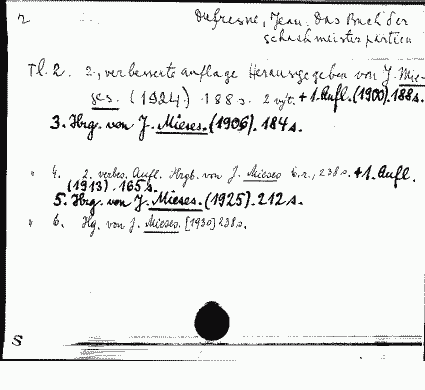 2
Dufresne, Jean. Das Buch der
Schachmeisterpartien
Tl. 2. 2., verbesserte Auflage Herausgegeben von J. Mie-
ses. (1924) 188 s. + 1. Aufl. (1900). 188 s.
3. Hrg. von J. Mieses. (1906). 184 s.
" 4. 2. verbes. Aufl. Hrgb. von J. Mieses 238 s. + 1. Aufl.
(1913). 165 s.
5. Hrg. von J. Mieses. (1925). 212 s.
" 6. Hg. von J. Mieses. [1930] 238 s.
S